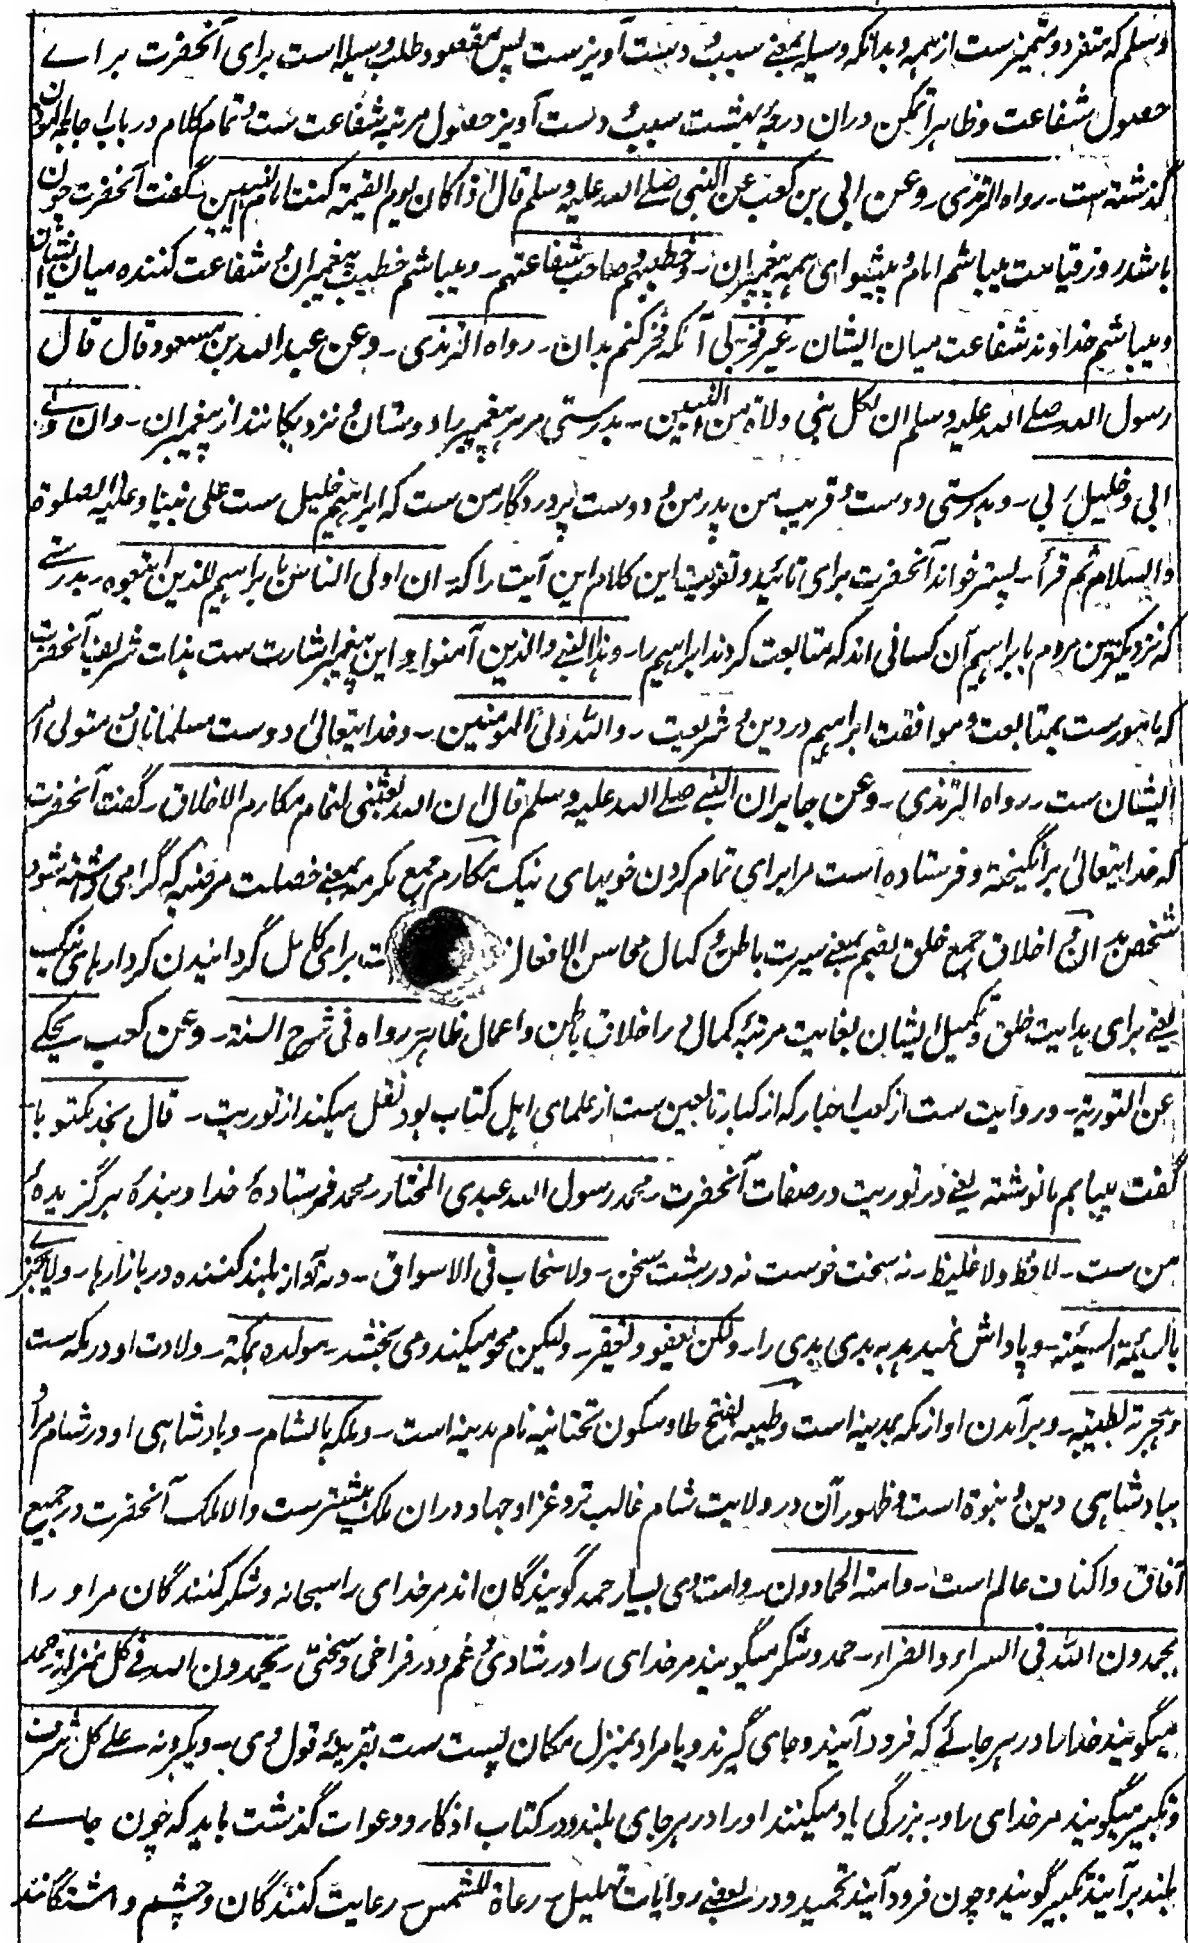 وسلم که متفرد و متمیزست از همه و بدانکه وسیله بمعنی سبب و دست آویزست پس مقصود طلب وسیله است برای آنحضرت برای
حصول شفاعت و ظاهرا تمکن دران درجۀ بهشت سبب و دست آویز حصول مرتبۀ شفاعت ست و تمام کلام در باب اجابة الموذن
گذشته است ـ رواه الترمذی ـ وعن ابی بن کعب عن النبی صلے الله علیه وسلم قال اذا کان یوم القیمة کنت امام النبیین گفت آنحضرت چون
باشد روز قیامت میباشم امام و پیشوای همه پیغمبران ـ وخطیبهم وصاحب شفاعتهم ـ و میباشم خطیب پیغمبران و شفاعت کننده میان ایشان
و میباشم خداوند شفاعت میان ایشان ـ غیر فخر ـ بی آنکه فخر کنم بدان ـ رواه الترمذی ـ وعن عبد الله بن مسعود قال قال
رسول الله صلے الله علیه وسلم ان لکل نبی ولاة من النبیین ـ بدرستی مر هر پیغمبر را دوستان و نزدیکانند از پیغمبران ـ وان ولیے
ابی و خلیل ربی ـ و بدرستی دوست و قریب من پدر من و دوست پروردگار من ست که ابراهیم خلیل ست علی نبینا وعلیه الصلوة
والسلام ثم قرأ ـ پستر خواند آنحضرت برای تائید و تقویت این کلام این آیت را که ـ ان اولی الناس بابراهیم للذین اتبعوه ـ بدرستے
که نزدیکترین مردم بابراهیم آن کسانی اند که متابعت کردند ابراهیم را ـ وهذا النبے والذین آمنوا و این پیغمبر اشارت ست بذات شریف آنحضرت
که مامورست بمتابعت و موافقت ابراهیم در دین و شریعت ـ والله ولی المومنین ـ و خدایتعالی دوست مسلمانان و متولی امر
ایشان ست ـ رواه الترمذی ـ وعن جابر ان النبے صلے الله علیه وسلم قال ان الله بعثنی لتمام مکارم الاخلاق ـ گفت آنحضرت
که خدایتعالی برانگیخته و فرستاده است مرا برای تمام کردن خویهای نیک مکارم جمع مکرمه بمعنے خصلت مرضیه که گرامی داشته شود
شخص بدان و اخلاق جمع خلق بضم بمعنے سیرت باطن و کمال محاسن الافعال ت برای کامل گردانیدن کردارهای نیک
یعنے برای هدایت خلق و تکمیل ایشان بغایت مرتبۀ کمال در اخلاق باطن و اعمال ظاهر ـ رواه فی شرح السنة ـ وعن کعب یحکے
عن التوریة ـ و روایت ست از کعب احبار که از کبار تابعین ست از علمای اهل کتاب بود نقل میکند از توریت ـ قال نجد مکتوبا
گفت مییابیم ما نوشته یعنے در توریت در صفات آنحضرت ـ محمد رسول الله عبدی المختار ـ محمد فرستادۀ خدا و بندۀ برگزیدۀ
من ست ـ لا فظ ولا غلیظ ـ نه سخت خوست نه درشت سخن ـ ولا سخاب فی الاسواق ـ و نه آواز بلند کننده در بازارها ـ ولا یجزے
بالسیئة السیئة ـ و پاداش نمیدهد به بدی بدی را ـ ولکن یعفو ویغفر ـ ولیکن محو میکند و می بخشد ـ مولده بمکة ـ ولادت او در مکه ست
وهجرته بطیبة ـ و برآمدن او از مکه بمدینه است و طیبه بفتح طا و سکون تحتانیه نام مدینه است ـ وملکه بالشام ـ و بادشاهی او در شام مراد
ببادشاهی دین و نبوة است و ظهور آن در ولایت شام غالب تر و غزا و جهاد دران ملک بیشترست والا ملک آنحضرت در جمیع
آفاق و اکناف عالم است ـ وامته الحمادون ـ و امت وی بسیار حمد گویندگان اند مر خدای را سبحانه و شکر کنندگان مر او را
یحمدون الله فی السراء والضراء ـ حمد و شکر میگویند مر خدای را در شادی و غم و در فراخی و سختی ـ یحمدون الله فے کل منزلة حمد
میگویند خدا را در هر جائے که فرود آیند و جای گیرند و یا مراد بمنزل مکان پست ست بقرینۀ قول وی ـ ویکبرونه علے کل شرف
و تکبیر میگویند مر خدای را و بزرگی یاد میکنند او را در هر جای بلند و در کتاب اذکار و دعوات گذشت باید که چون جاے
بلند برآیند تکبیر گویند و چون فرود آیند تحمید و در بعضے روایات تهلیل ـ رعاة للشمس ـ رعایت کنندگان و چشم داشتگانند